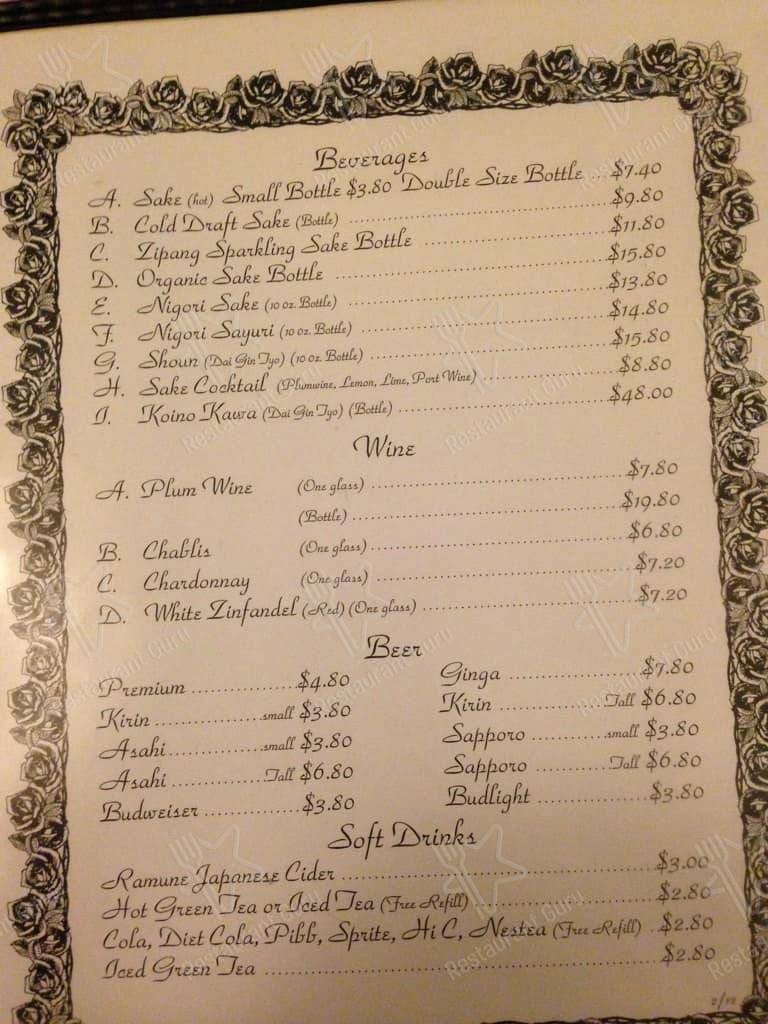 Beverages
A. Sake (hot) Small Bottle $3.80 Double Size Bottle ... $7.40
B. Cold Draft Sake (Bottle) ........ $9.80
C. Zipang Sparkling Sake Bottle ........ $11.80
D. Organic Sake Bottle ........ $15.80
E. Nigori Sake (10 oz. Bottle) ........ $13.80
F. Nigori Sayuri (10 oz. Bottle) ........ $14.80
G. Shoun (Dai Gin Jyo) (10 oz. Bottle) ........ $15.80
H. Sake Cocktail (Plumwine, Lemon, Lime, Port Wine) ........ $8.80
I. Koino Kawa (Dai Gin Jyo) (Bottle) ........ $48.00
Wine
A. Plum Wine (One glass) ........ $7.80
(Bottle) ........ $19.80
B. Chablis (One glass) ........ $6.80
C. Chardonnay (One glass) ........ $7.20
D. White Zinfandel (Red) (One glass) ........ $7.20
Beer
Premium ........ $4.80
Kirin ........ small $3.80
Asahi ........ small $3.80
Asahi ........ Tall $6.80
Budweiser ........ $3.80
Ginga ........ $7.80
Kirin ........ Tall $6.80
Sapporo ........ small $3.80
Sapporo ........ Tall $6.80
Budlight ........ $3.80
Soft Drinks
Ramune Japanese Cider ........ $3.00
Hot Green Tea or Iced Tea (Free Refill) ........ $2.80
Cola, Diet Cola, Pibb, Sprite, Hi C, Nestea (Free Refill) .. $2.80
Iced Green Tea ........ $2.80
Restaurant Guru